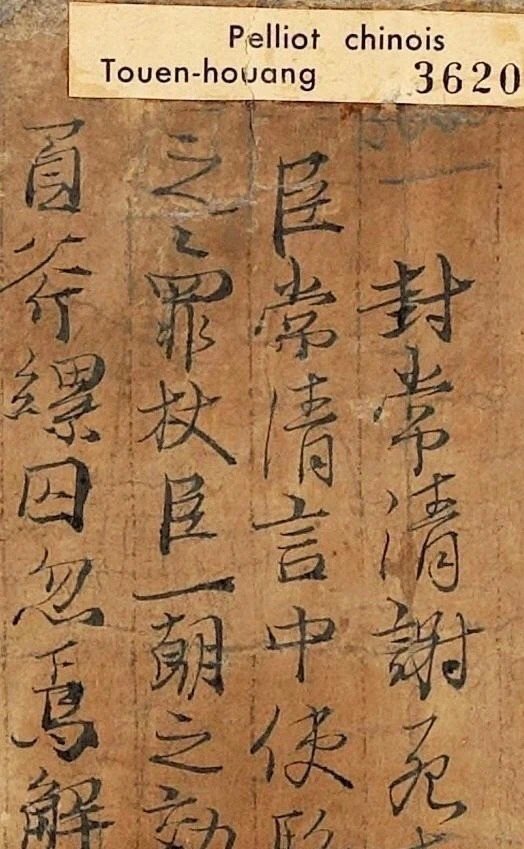 Pelliot chinois
Touen-houang 3620
封常清謝死
臣常清言中使
之罪杖臣一朝之効
負斧縲囚忽焉解